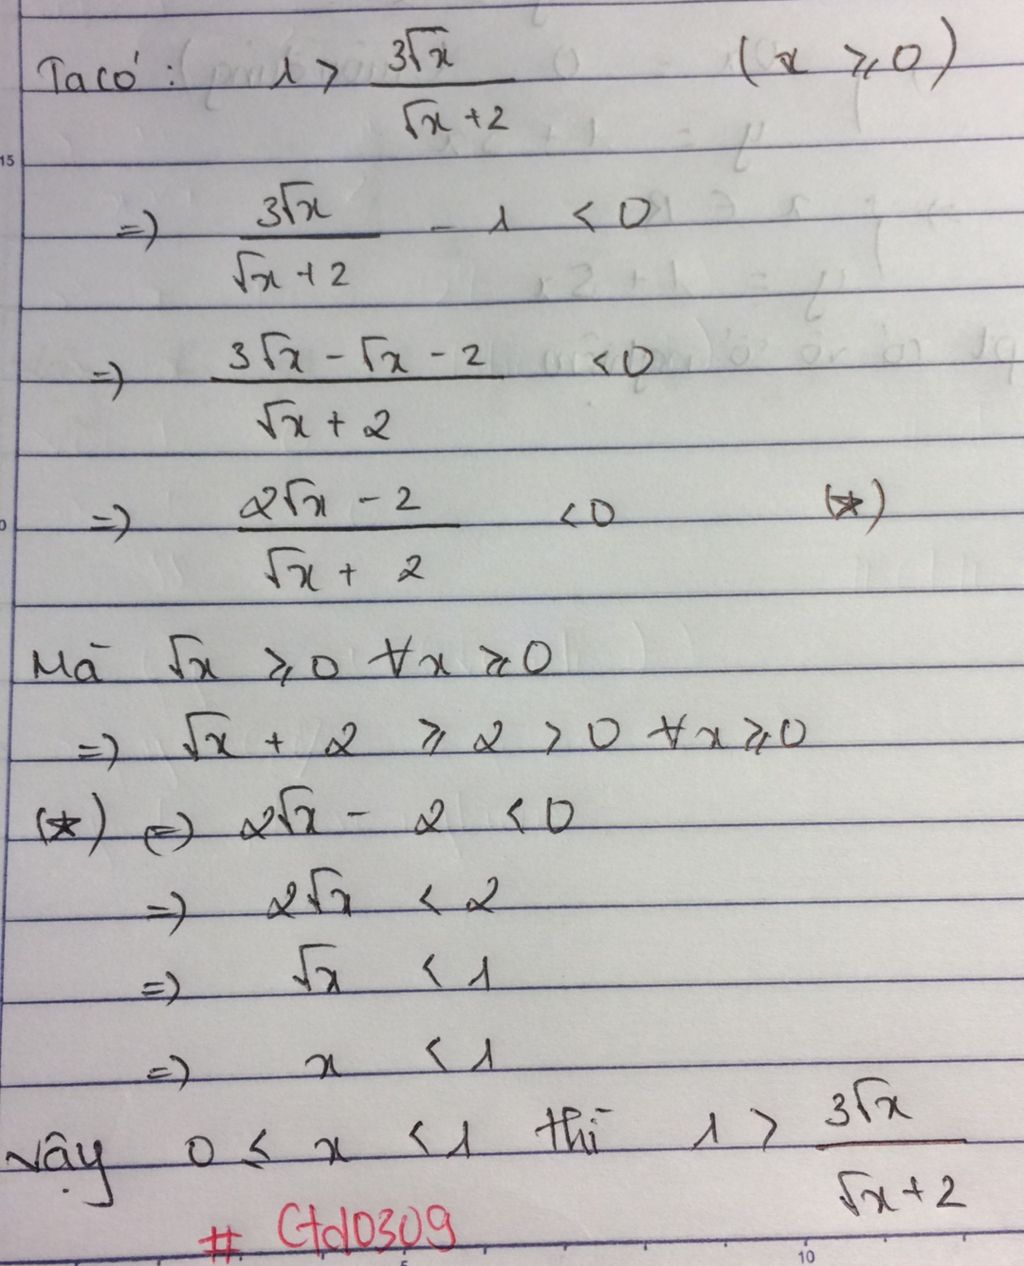 Ta có : 1 > 3√x / (√x + 2) (x ≥ 0)
15
=> 3√x / (√x + 2) - 1 < 0
=> (3√x - √x - 2) / (√x + 2) < 0
=> (2√x - 2) / (√x + 2) < 0 (*)
Mà √x ≥ 0 ∀x ≥ 0
=> √x + 2 ≥ 2 > 0 ∀x ≥ 0
(*) (=> 2√x - 2 < 0
=> 2√x < 2
=> √x < 1
=> x < 1
Vậy 0 ≤ x < 1 thì 1 > 3√x / (√x + 2)
# Ctd0309
10